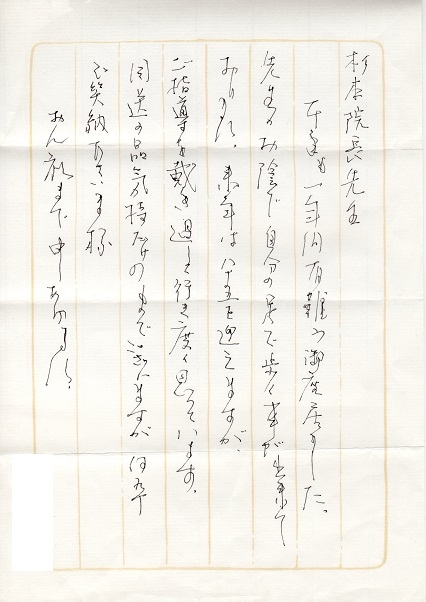 杉本院長先生
本年も一年間有難う御座居ました。
先生のお陰で自分の足で歩く事が出来て
おります。来年は八十五を迎えますが、
ご指導を戴き過して行き度く思っています。
同送の品気持だけのもので ますが 何卒
ご笑納下さいます様
お